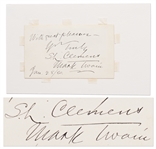 With much pleasure
Yrs Truly
S L Clemens
Mark Twain
Jan
S L. Clemens
Mark Twain